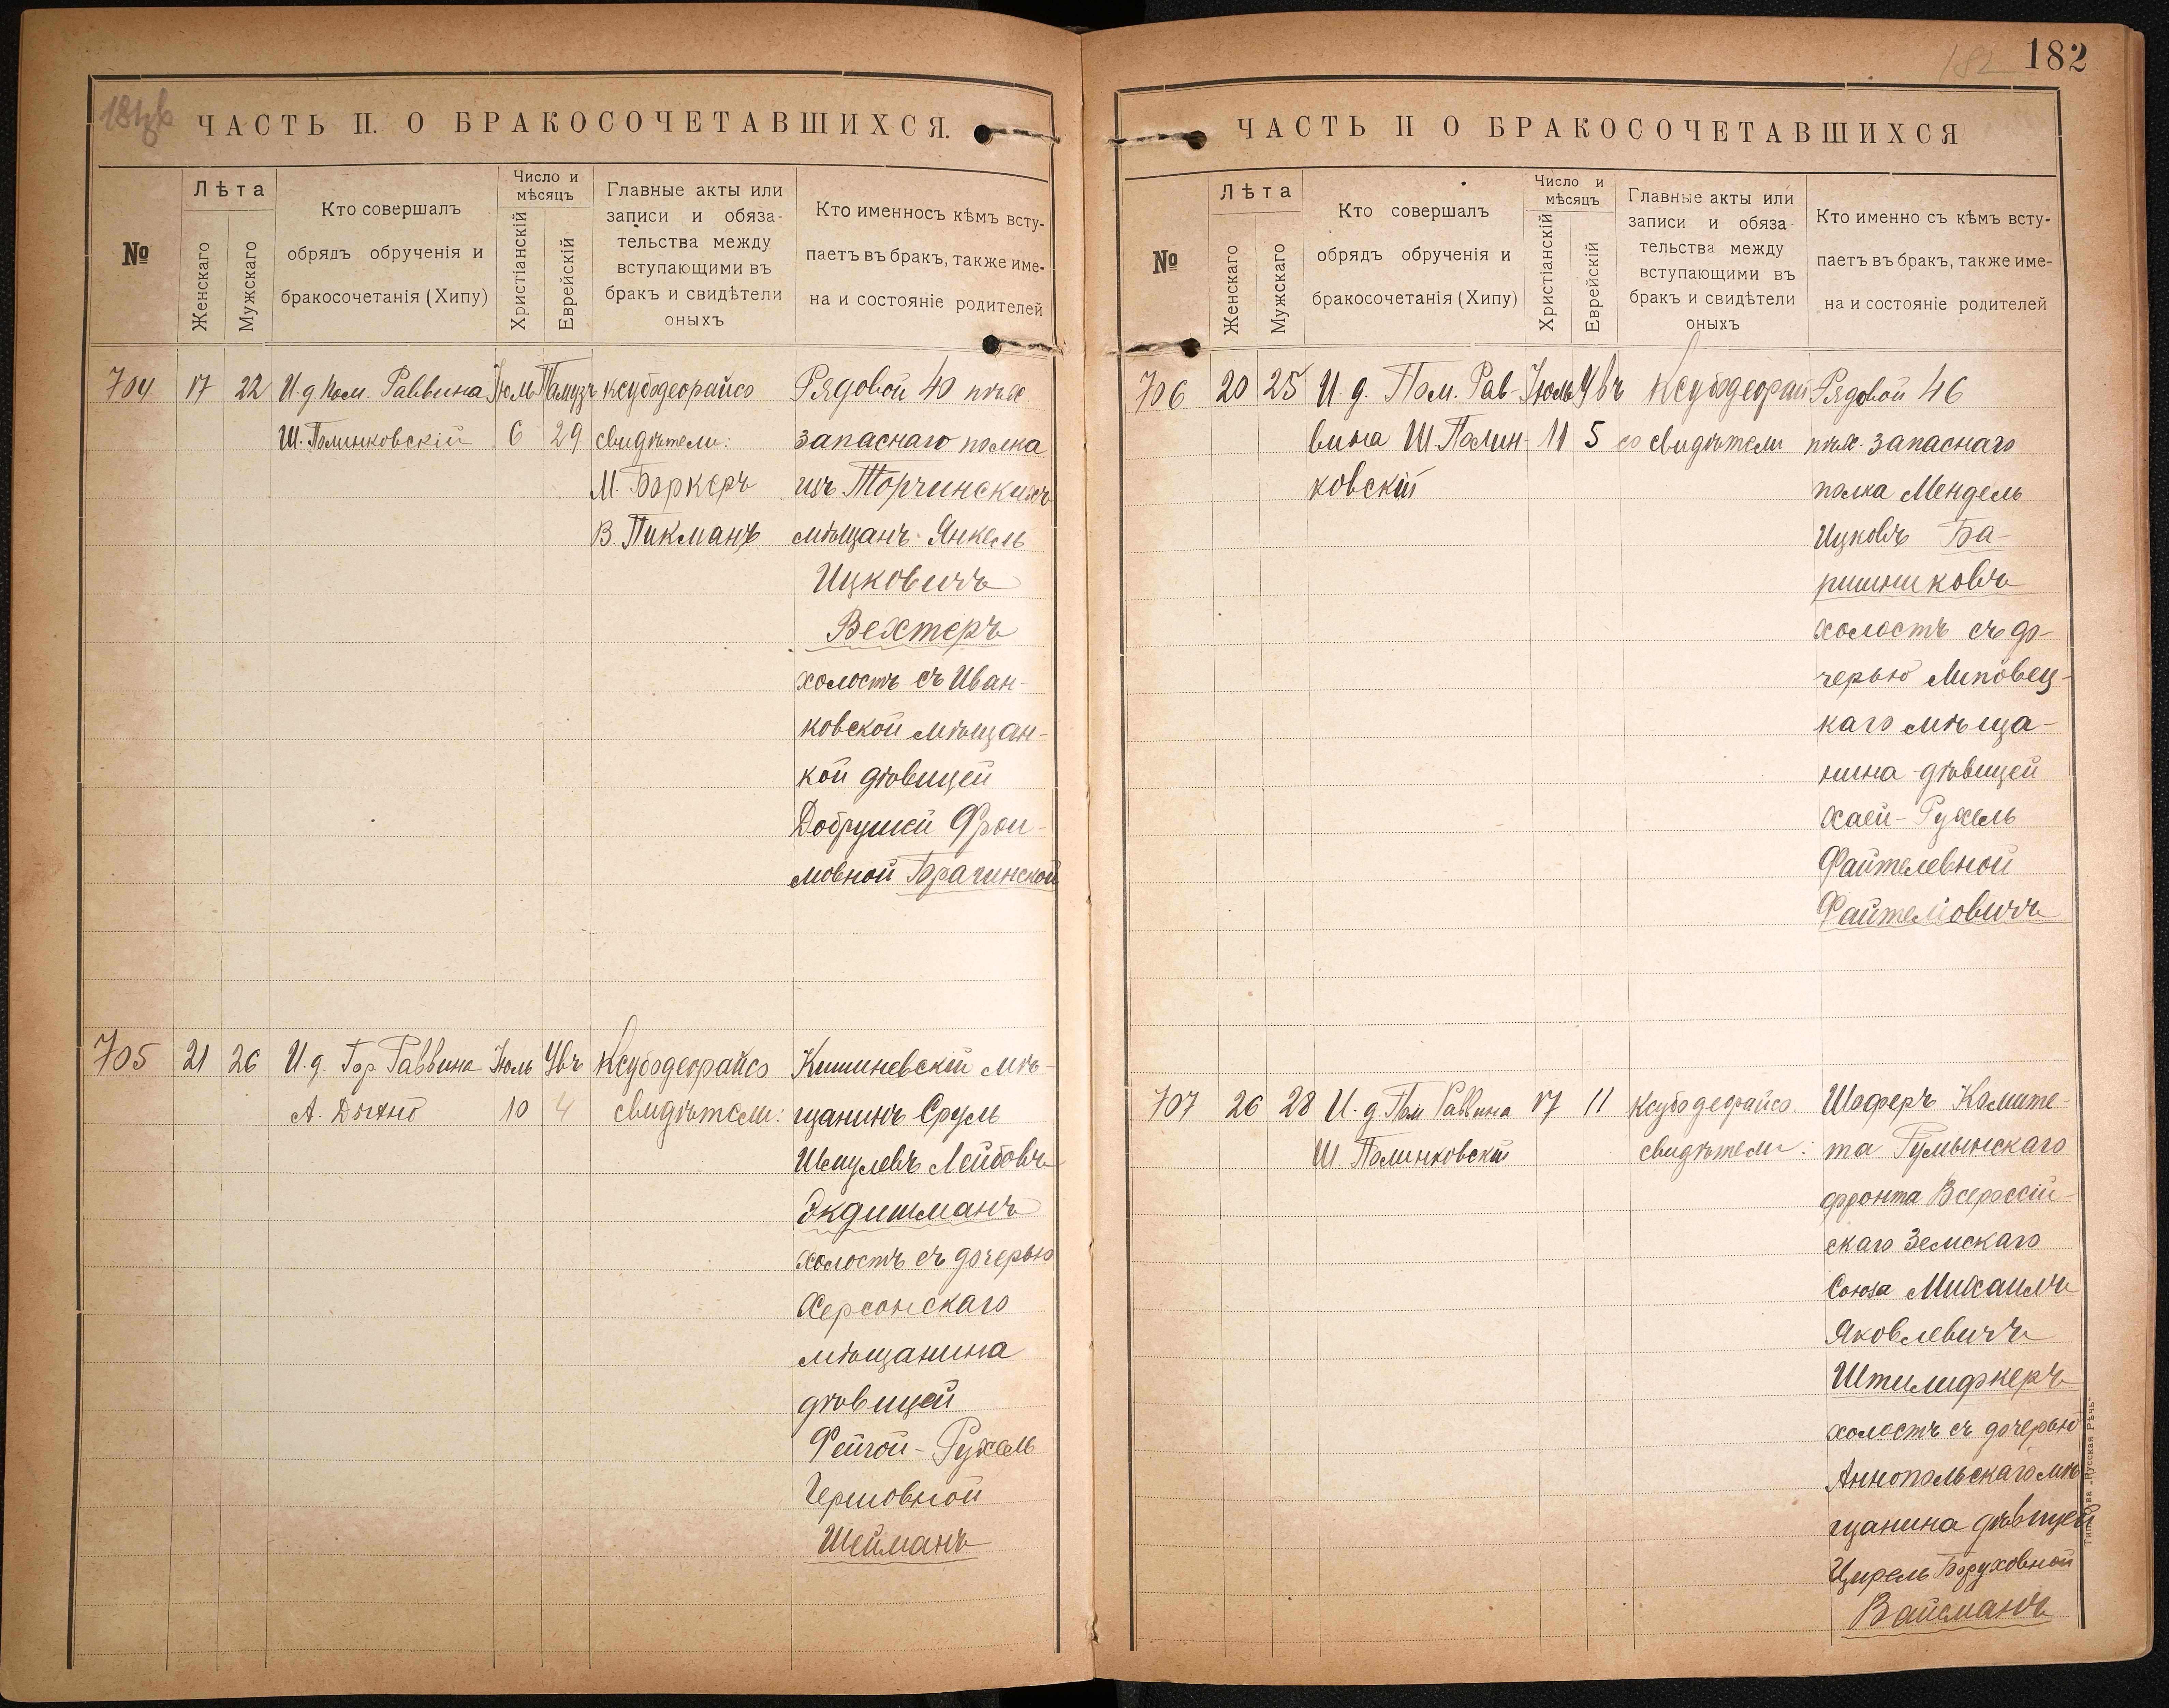 181об
ЧАСТЬ II. О БРАКОСОЧЕТАВШИХСЯ.
№
Лѣта
Женскаго
Мужскаго
Кто совершалъ
обрядъ обрученія и
бракосочетанія (Хипу)
Число и
мѣсяцъ
Христіанскій
Еврейскій
Главные акты или
записи и обяза-
тельства между
вступающими въ
бракъ и свидѣтели
оныхъ
Кто именносъ кѣмъ всту-
паетъ въ бракъ, также име-
на и состояніе родителей
704 17 22 И.д. Пом. Раввина Іюль Тамузъ ксубодеорайсо Рядовой 40 пѣх
Ш. Полинковскій 6 29 свидѣтели: запаснаго полка
М. Боркеръ изъ Торчинскихъ
В. Пикманъ мѣщанъ Янкель
Ицковичъ
Вехтеръ
холостъ съ Иван-
ковской мѣщан-
кой дѣвицей
Добрушей Фрои-
мовной Брагинской
705 21 26 И.д. Гор. Раввина Іюль Увъ Ксубодеорайсо Кишиневскій мѣ-
А. Дыхно 10 4 свидѣтели: щанинъ Сруль
Шмулевъ Лейбовъ
Экдишманъ
холостъ съ дочерью
Херсонскаго
мѣщанина
дѣвицей
Фейгой-Рухель
Гершовной
Шейманъ
182
182
ЧАСТЬ II О БРАКОСОЧЕТАВШИХСЯ
№
Лѣта
Женскаго
Мужскаго
Кто совершалъ
обрядъ обрученія и
бракосочетанія (Хипу)
Число и
мѣсяцъ
Христіанскій
Еврейскій
Главные акты или
записи и обяза
тельства между
вступающими въ
бракъ и свидѣтели
оныхъ
Кто именно съ кѣмъ всту-
паетъ въ бракъ, также име-
на и состояніе родителей
706 20 25 И.д. Пом. Рав- Іюль Увъ Ксубодеорай Рядовой 46
вина Ш Полин- 11 5 со свидѣтели пѣх. запаснаго
ковскій полка Мендель
Ицковъ Ба-
ришниковъ
холостъ съ до-
черью Липовец-
каго мѣща-
нина дѣвицей
Хаей-Рухель
Файтелевной
Файтеловичъ
707 26 28 И.д. Пом Раввина 17 11 Ксубодеорайсо. Шоферъ Комите-
Ш Полинковскій свидѣтели: та Румынскаго
фронта Всероссій-
скаго Земскаго
Союза Михаилъ
Яковлевичъ
Штилифкеръ
холостъ съ дочерью
Аннопольскаго мѣ
щанина дѣвицей
Цирель Боруховной
Вайсманъ
„Русская Рѣчь“